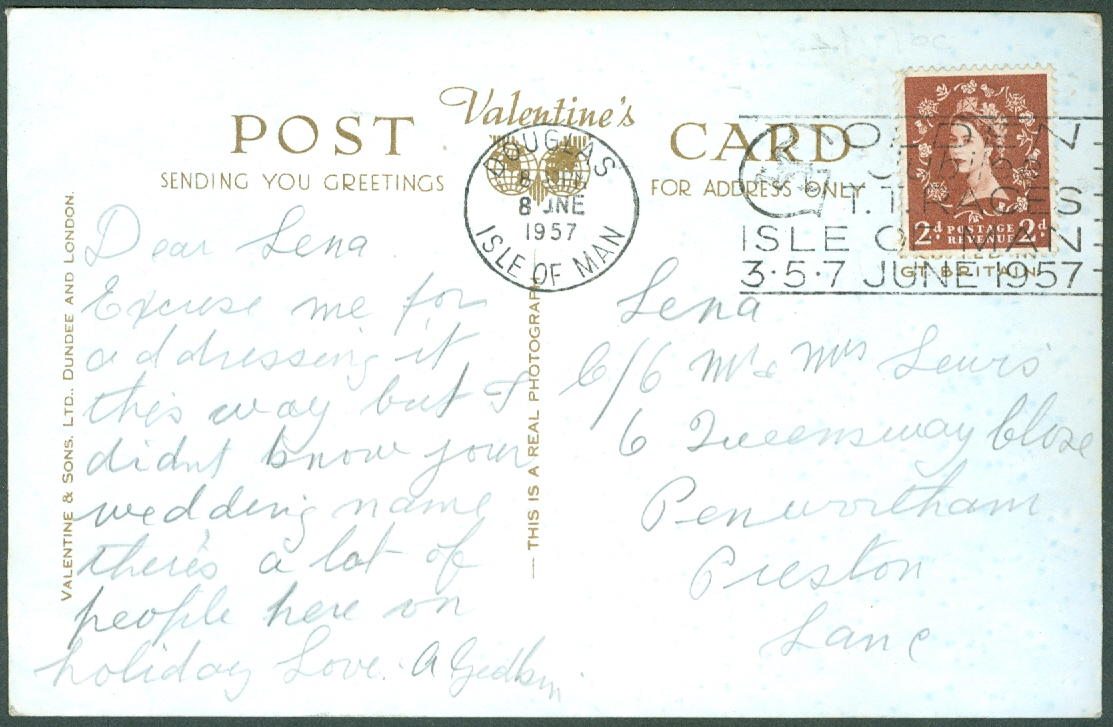 Valentine's
POST CARD
SENDING YOU GREETINGS
FOR ADDRESS ONLY
DOUGLAS
8 JNE
1957
ISLE OF MAN
GOLDEN
JUBILEE
T.T. RACES
ISLE OF MAN
3·5·7 JUNE 1957
2d POSTAGE REVENUE 2d
GT. BRITAIN
VALENTINE & SONS. LTD., DUNDEE AND LONDON.
THIS IS A REAL PHOTOGRAPH
Dear Lena
Excuse me for
addressing it
this way but I
didnt know your
wedding name
there's a lot of
people here on
holiday Love. A
Lena
C/o Mr & Mrs Lewis
6 Queensway Close
Penwortham
Preston
Lanc